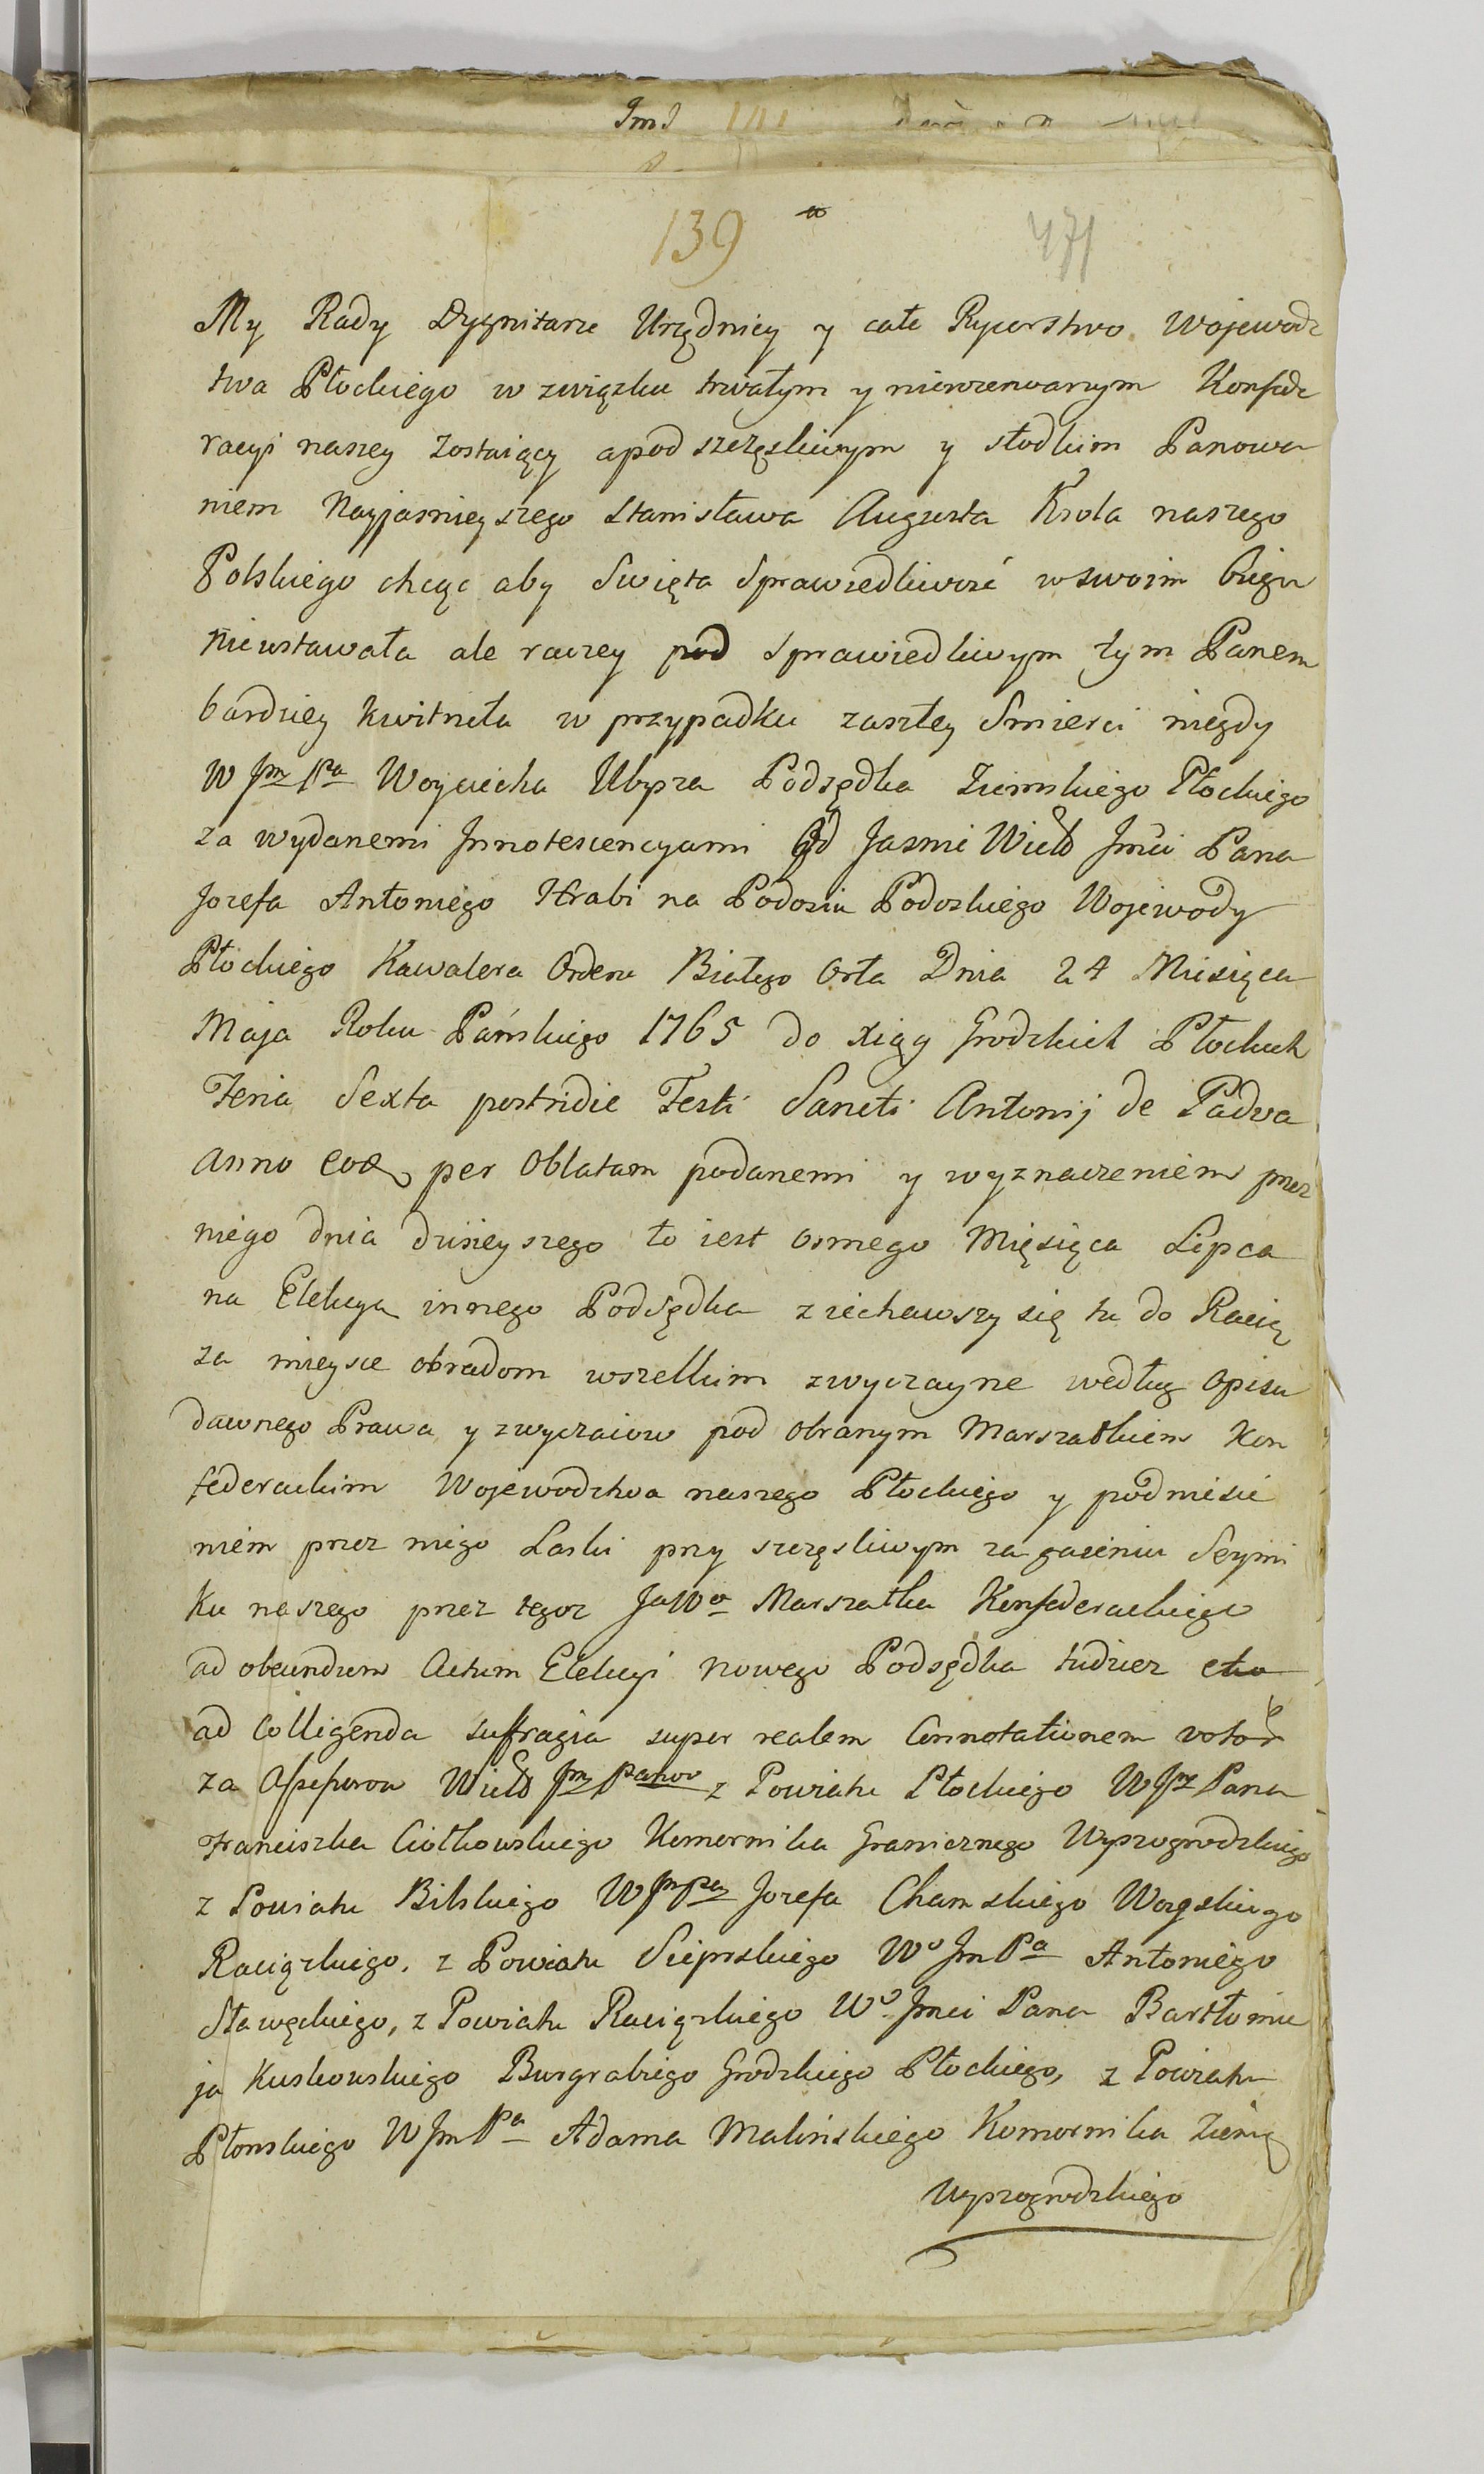 139
471
My Rady Dygnitarze Urzędnicy y całe Rycerstwo Wojewodz
twa Płockiego w związku trwałym y nierozerwanym Konfede
racyi naszey zostaiący a pod szczęśliwym y słodkim Panowa
niem Nayjasnieyszego Stanisława Augusta Krola naszego
Polskiego chcąc aby Swięta Sprawiedliwość w swoim biegu
nieustawała ale raczey pod Sprawiedliwym tym Panem
bardziey kwitneła w przypadku zaszłey Smierci niegdy
W Jm Pa Woyciecha Ubysza Podsędka Ziemskiego Płockiego
za wydanemi Innotescencyami od Jasnie Wielo Jmći Pana
Jozefa Antoniego Hrabi na Podosiu Podoskiego Wojewody
Płockiego Kawalera Orderu Białego Orła Dnia 24 Miesięca
Maja Roku Pańskiego 1765 do xiąg Grodzkich Płockich
Feria Sexta postridie Festi Sancti Antonij de Padva
Anno eod per Oblatam podanemi y wyznaczeniem przez
niego dnia dzisieyszego to iest osmego Mięsięca Lipca
na Elekcyą innego Podsędka ziechawszy się tu do Racią
za mieysce obradom wszelkim zwyczayne według opisu
dawnego Prawa y zwyczaiow pod obranym Marszałkiem Kon
federackim Wojewodztwa naszego Płockiego y podniesie
niem przez niego Laski przy szczęsliwym zagaieniu Seymi
ku naszego przez tegoz JaWo Marszałka Konfederackiego
ad obeundum Actum Elekcyi nowego Podsędka tudziez
ad Colligenda suffragia super realem Connotationem votor
za Assessorow Wielo Jm Panow z Powiatu Płockiego W Jm Pana
Franciszka Ciołkowskiego Komornika Granicznego Wyszogrodzkiego
z Powiatu Bilskiego W Jm Pa Jozefa Chamskiego Woyskiego
Raciązkiego, z Powiatu Sieprskiego Wo Jm Pa Antoniego
Sławęckiego, z Powiatu Raciązkiego Wo Jmci Pana Bartłomie
ja Kuskowskiego Burgrabiego Grodzkiego Płockiego, z Powiatu
Płonskiego W Jm Pa Adama Malińskiego Komornika Ziemg
Wyszogrodzkiego